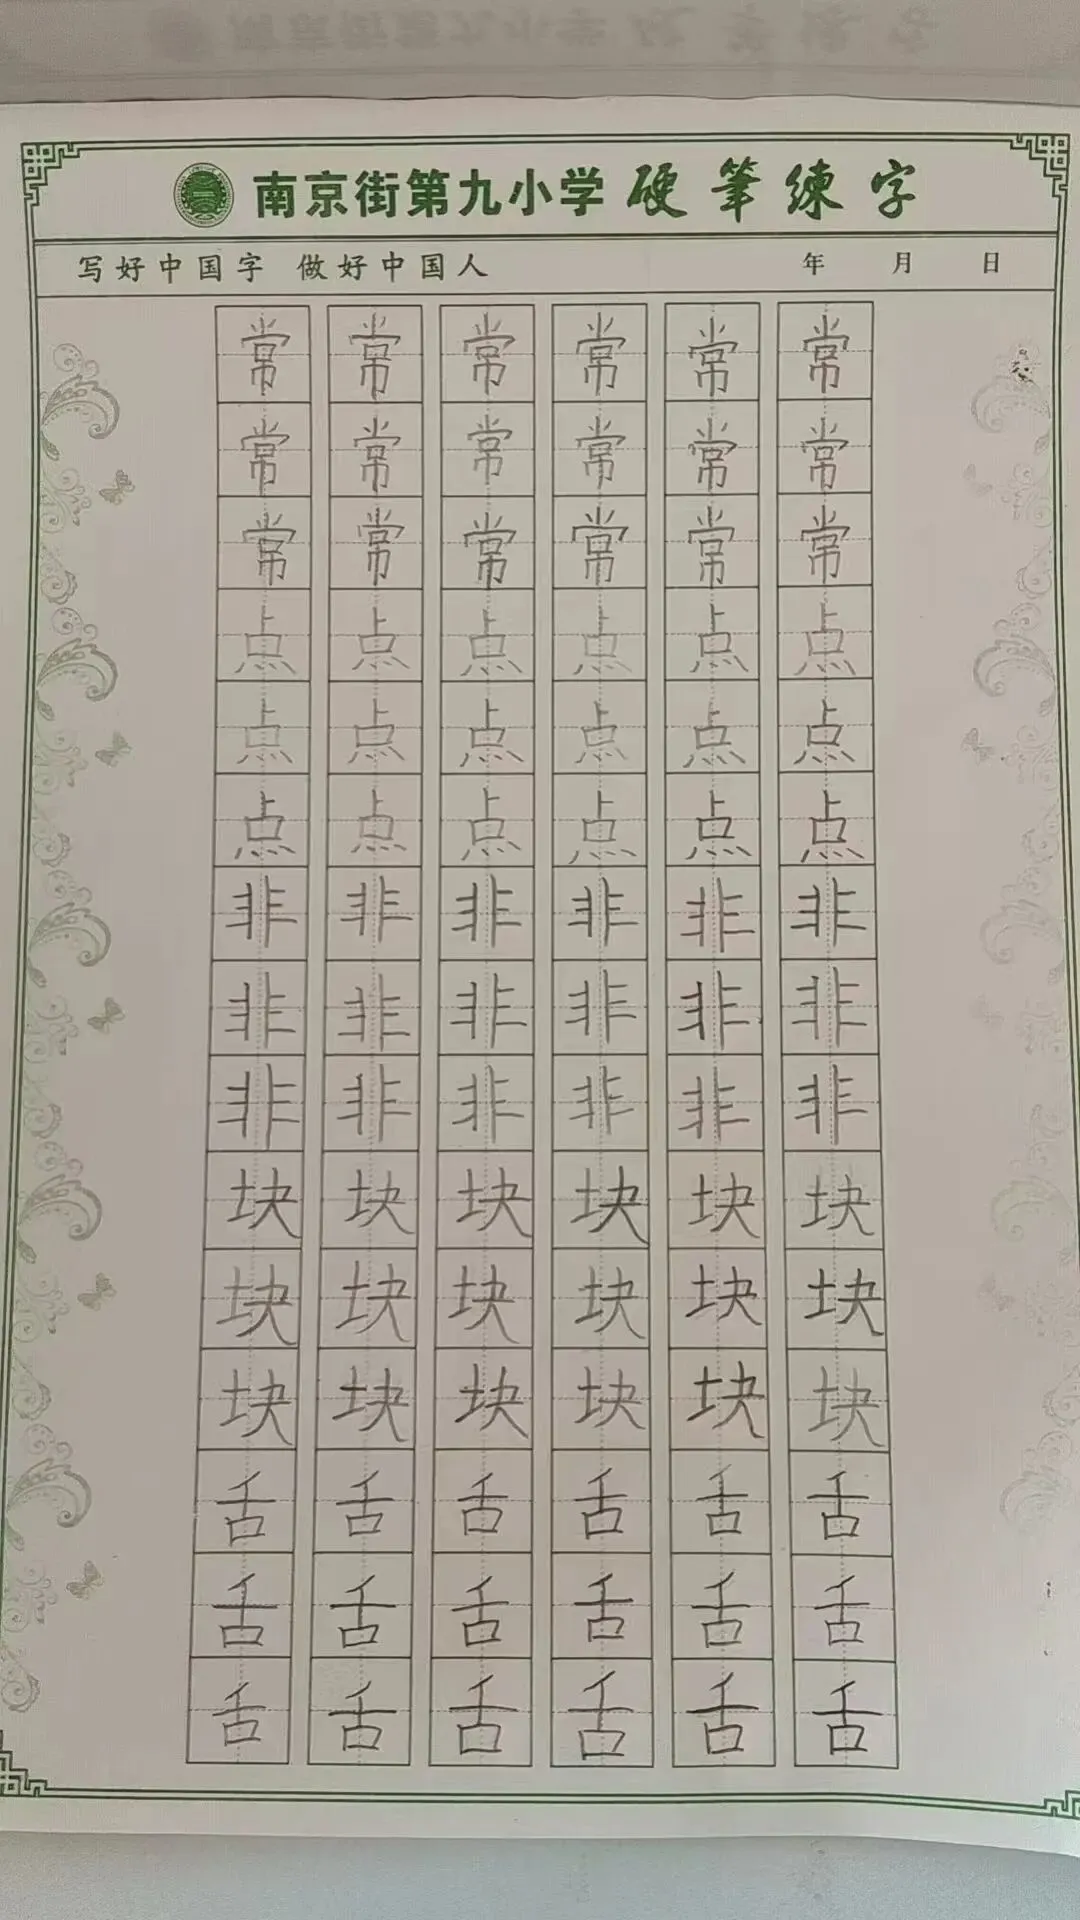 南京街第九小学 硬筆练字
写好中国字 做好中国人 年 月 日
常 常 常 常 常 常
常 常 常 常 常 常
常 常 常 常 常 常
点 点 点 点 点 点
点 点 点 点 点 点
点 点 点 点 点 点
非 非 非 非 非 非
非 非 非 非 非 非
非 非 非 非 非 非
块 块 块 块 块 块
块 块 块 块 块 块
块 块 块 块 块 块
舌 舌 舌 舌 舌 舌
舌 舌 舌 舌 舌 舌
舌 舌 舌 舌 舌 舌